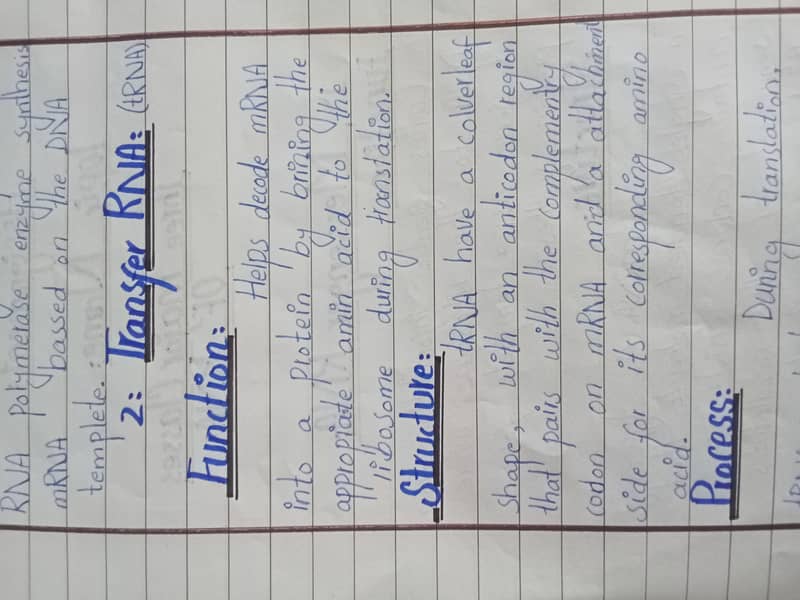 RNA polymerase enzyme synthesis
mRNA bassed on the DNA
templete.
2: Transfer RNA: (tRNA)
Function:
Helps decode mRNA
into a protein by brizing the
appropiate amin acid to the
ribosome during translation.
Structure:
tRNA have a colverleaf
shape, with an anticodon region
that pairs with the complementry
codon on mRNA and a attachment
side for its corresponding amino
acid.
Process:
During translation,